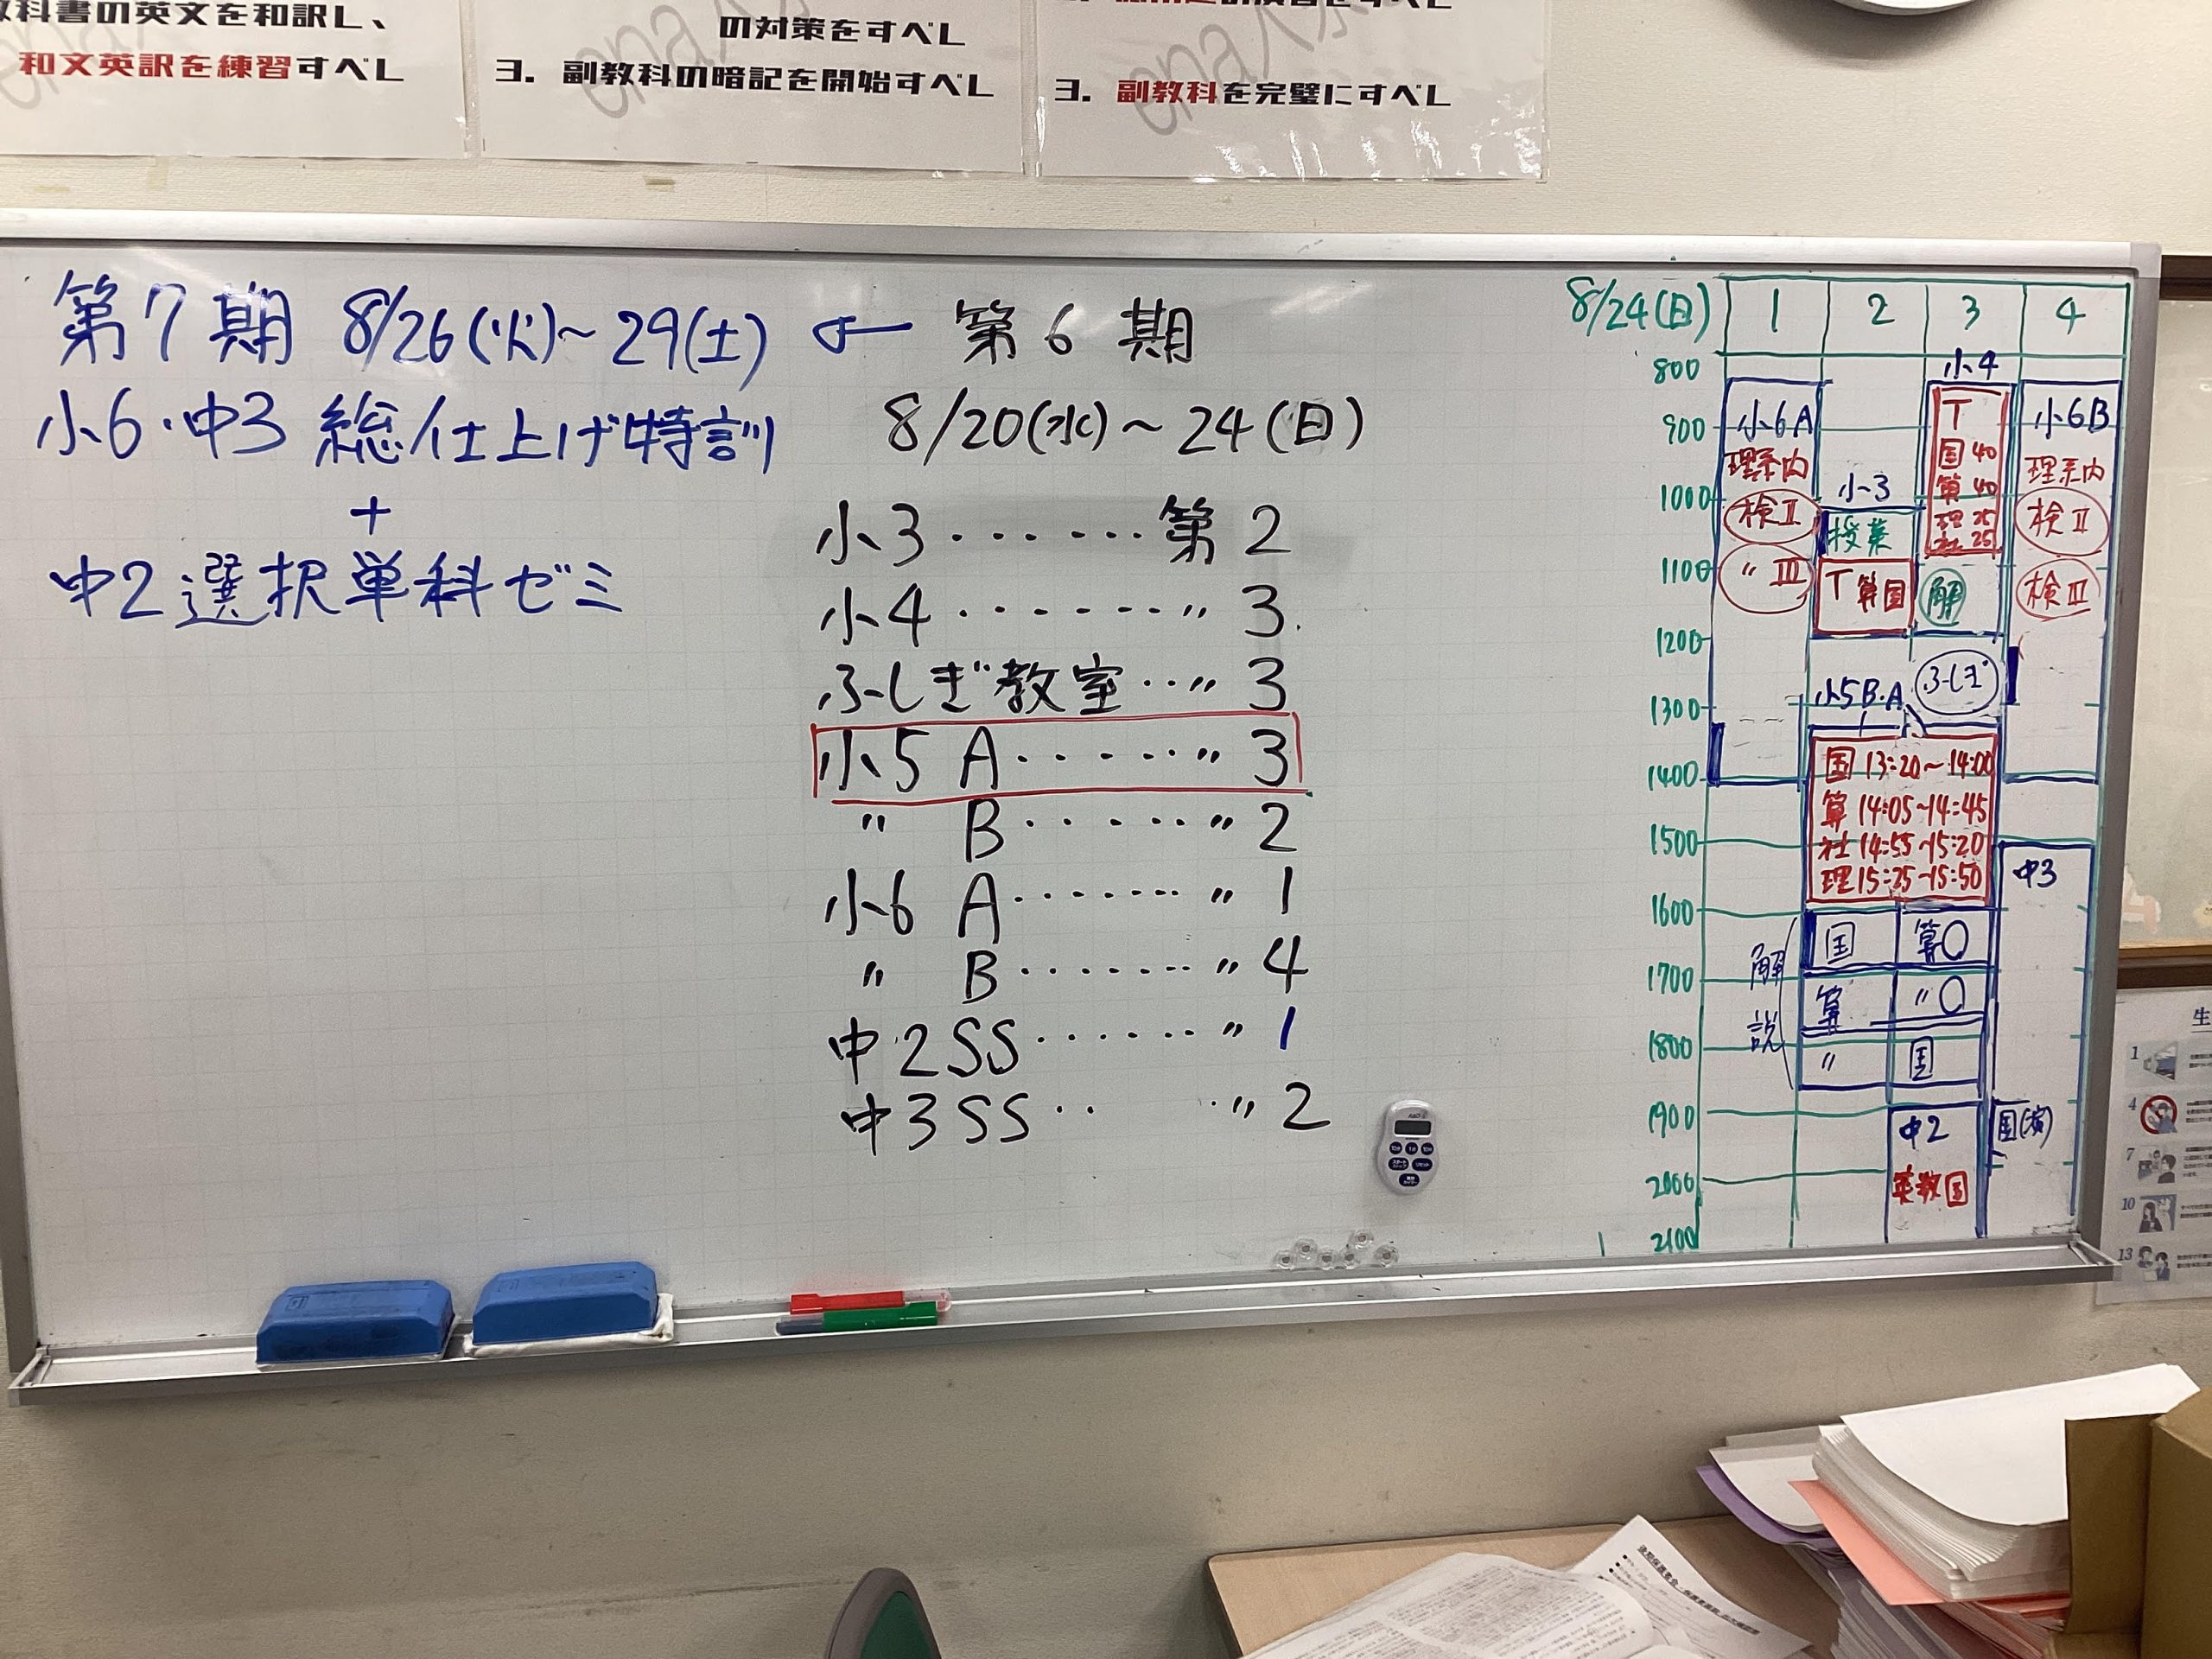 教科書の英文を和訳し、
和文英訳を練習すべし
の対策をすべし
3. 副教科の暗記を開始すべし
3. 副教科を完璧にすべし
第7期 8/26(火)~29(土) ← 第6期
小6・中3 総仕上げ特訓
+
中2選択単科ゼミ
8/20(水)~24(日)
小3・・・・・・第2
小4・・・・・・・〃3
ふしぎ教室・・〃3
小5 A・・・・・〃3
〃 B・・・・・・〃2
小6 A・・・・・・・〃1
〃 B・・・・・・・〃4
中2SS・・・・・・・〃1
中3SS・・ ・〃2
8/24(日) 1 2 3 4
800
900
1000
1100
1200
1300
1400
1500
1600
1700
1800
1900
2000
2100
小6A
理系内
検Ⅱ
〃Ⅲ
小3
授業
T 算国
小4
T
国40
算40
理25
社25
解
小6B
理系内
検Ⅱ
検Ⅲ
小5B・A
ふしぎ
国 13:20~14:00
算 14:05~14:45
社 14:55~15:20
理 15:25~15:50
解説
国 算○
算 〃○
〃 国
中3
国(演)
中2
英数国
生
1
4
7
10
13